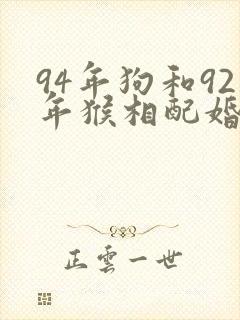 94年狗和92
年猴相配婚
正雲一世